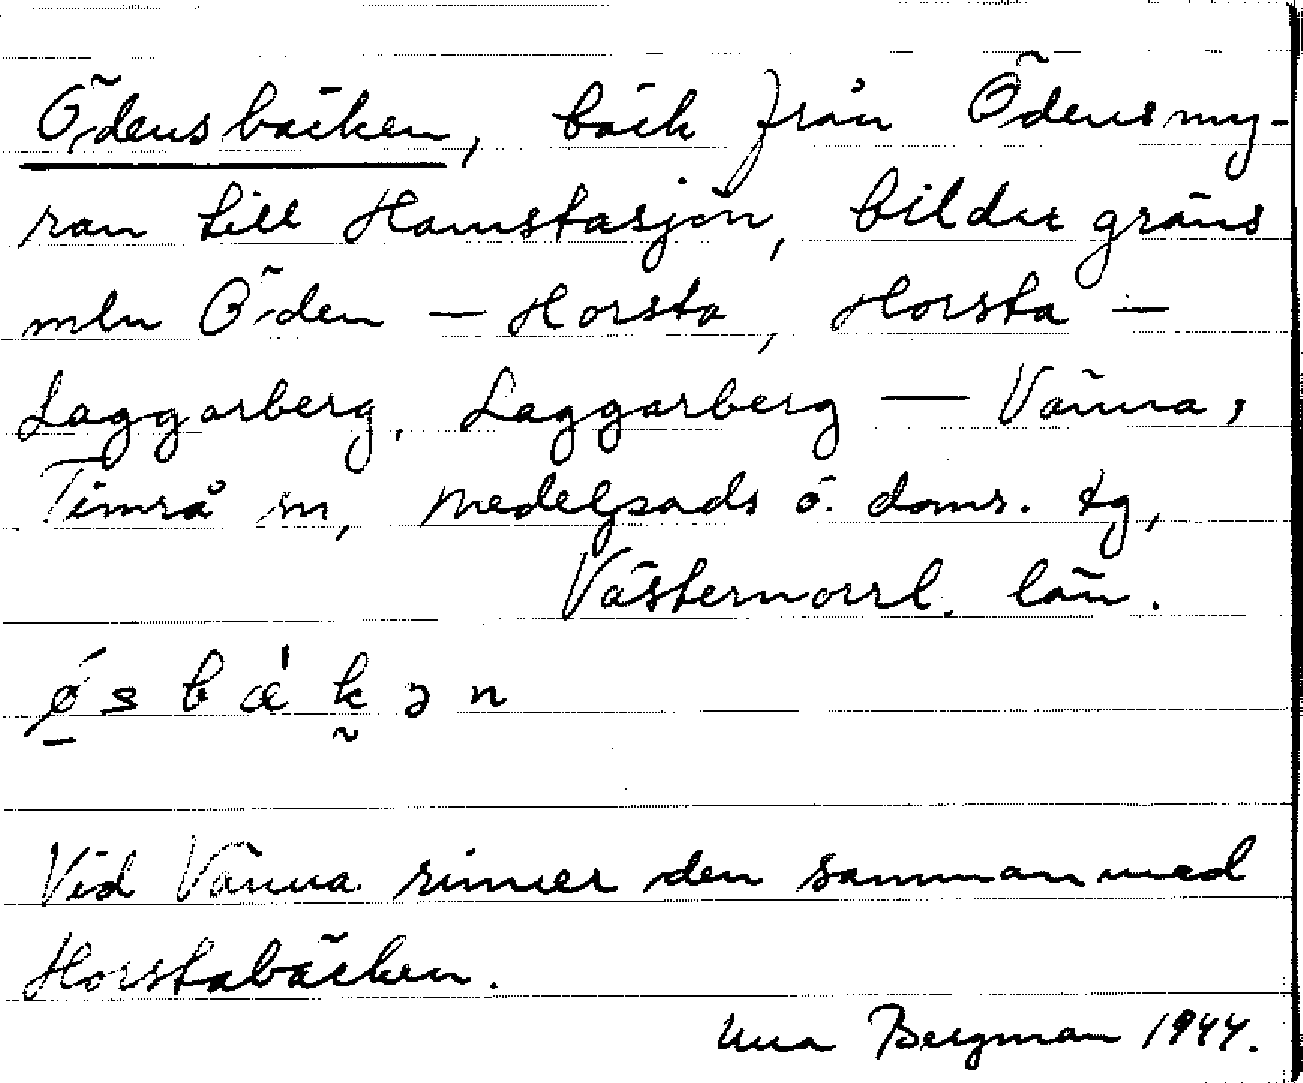 Ödensbäcken, bäck från Ödensmy-
ran till Hamstasjön, bildar gräns
mln Öden – Horsta, Horsta –
Laggarberg, Laggarberg – Vänna,
Timrå sn, Medelpads ö. doms. tg,
Västernorrl. län.
ǿsbæ̍kən
Vid Vänna rinner den samman med
Horstabäcken.
Una Bergman 1944.